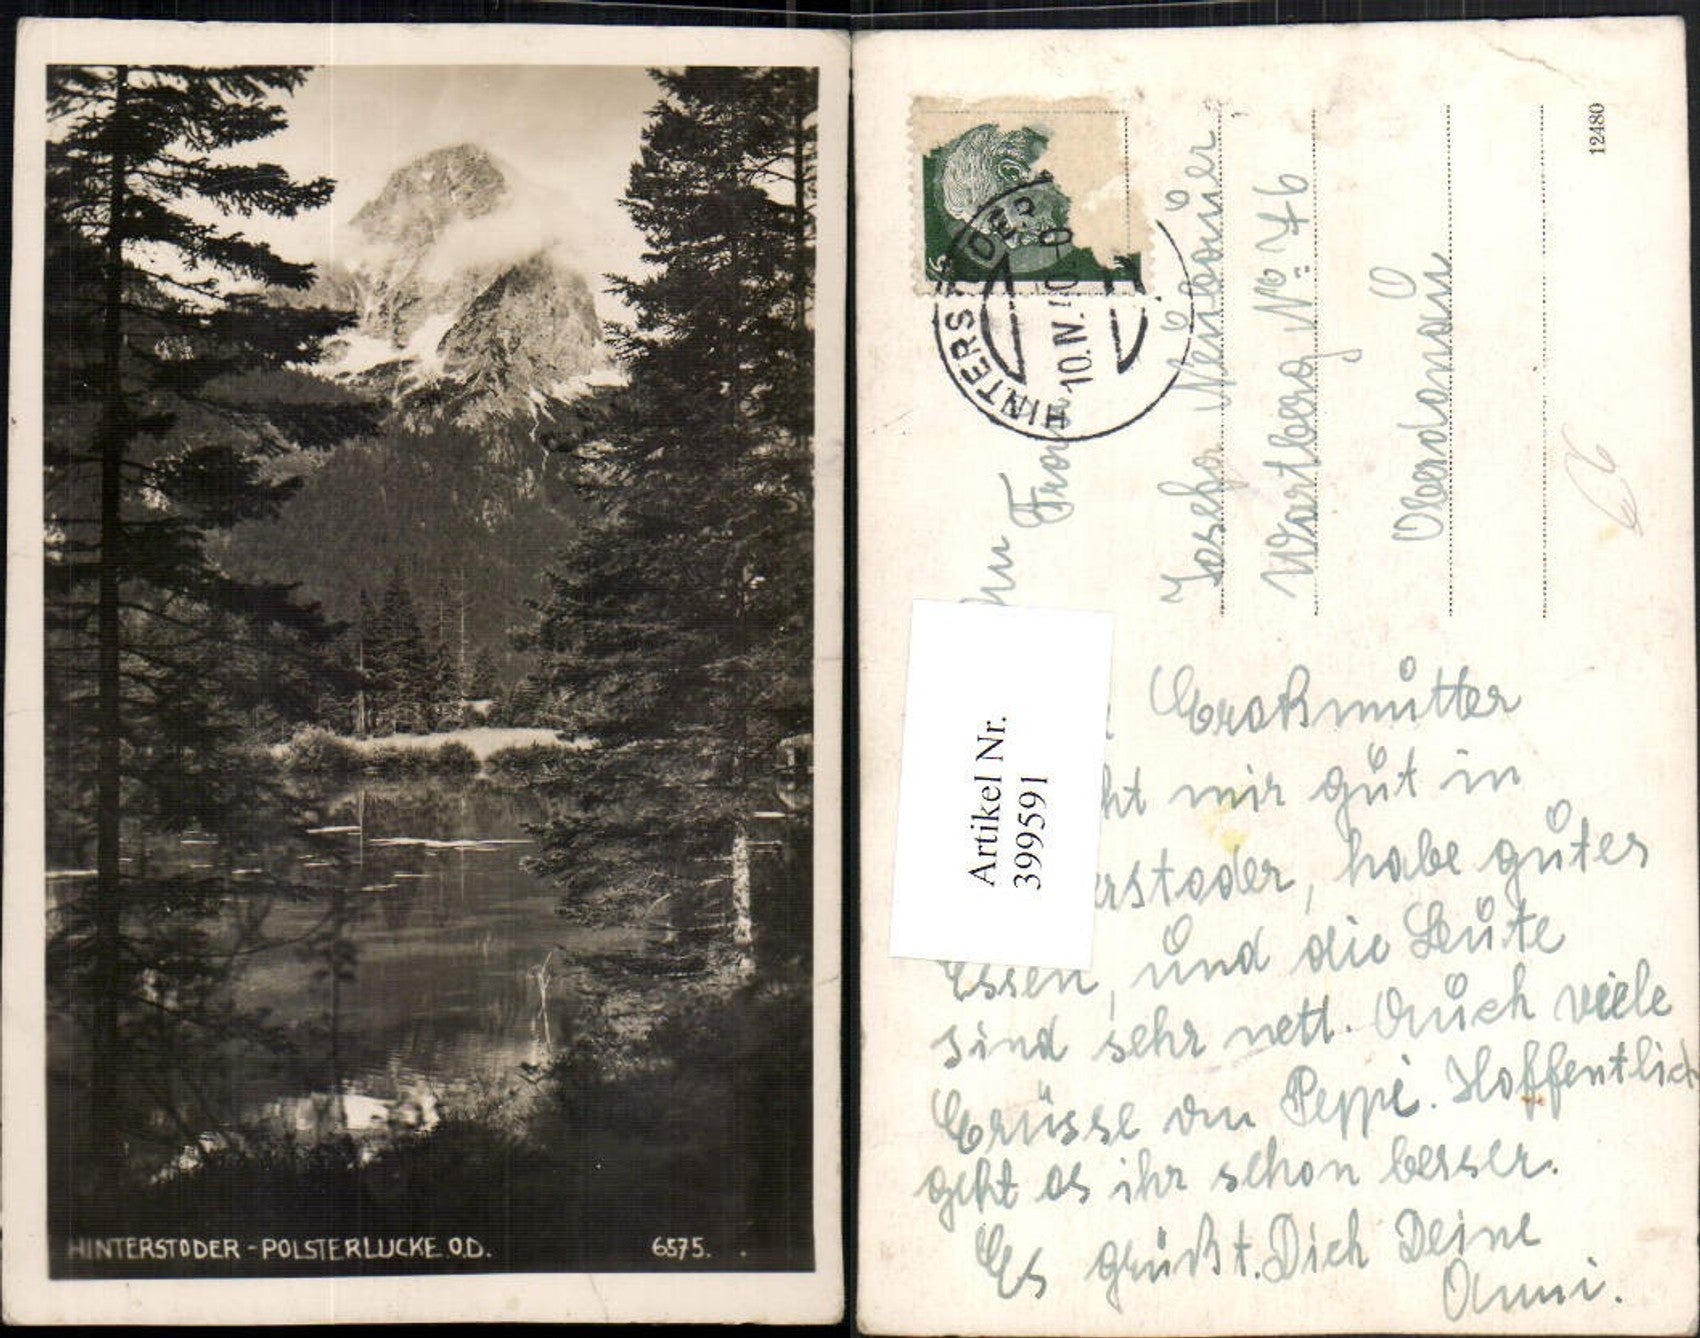 HINTERSTODER - POLSTERLUCKE O.D.
6575.
12480
HINTERSTODER
10.IV.40
An Frau
Josefa Neubauer
Wartberg No 46
Oberdonau
66
Artikel Nr.
399591
Großmutter
ht mir gut in
erstoder, habe gutes
Essen, und die Leute
sind sehr nett. Auch viele
Grüsse an Peppi. Hoffentlich
geht es ihr schon besser.
Es grüßt Dich Deine
Anni.